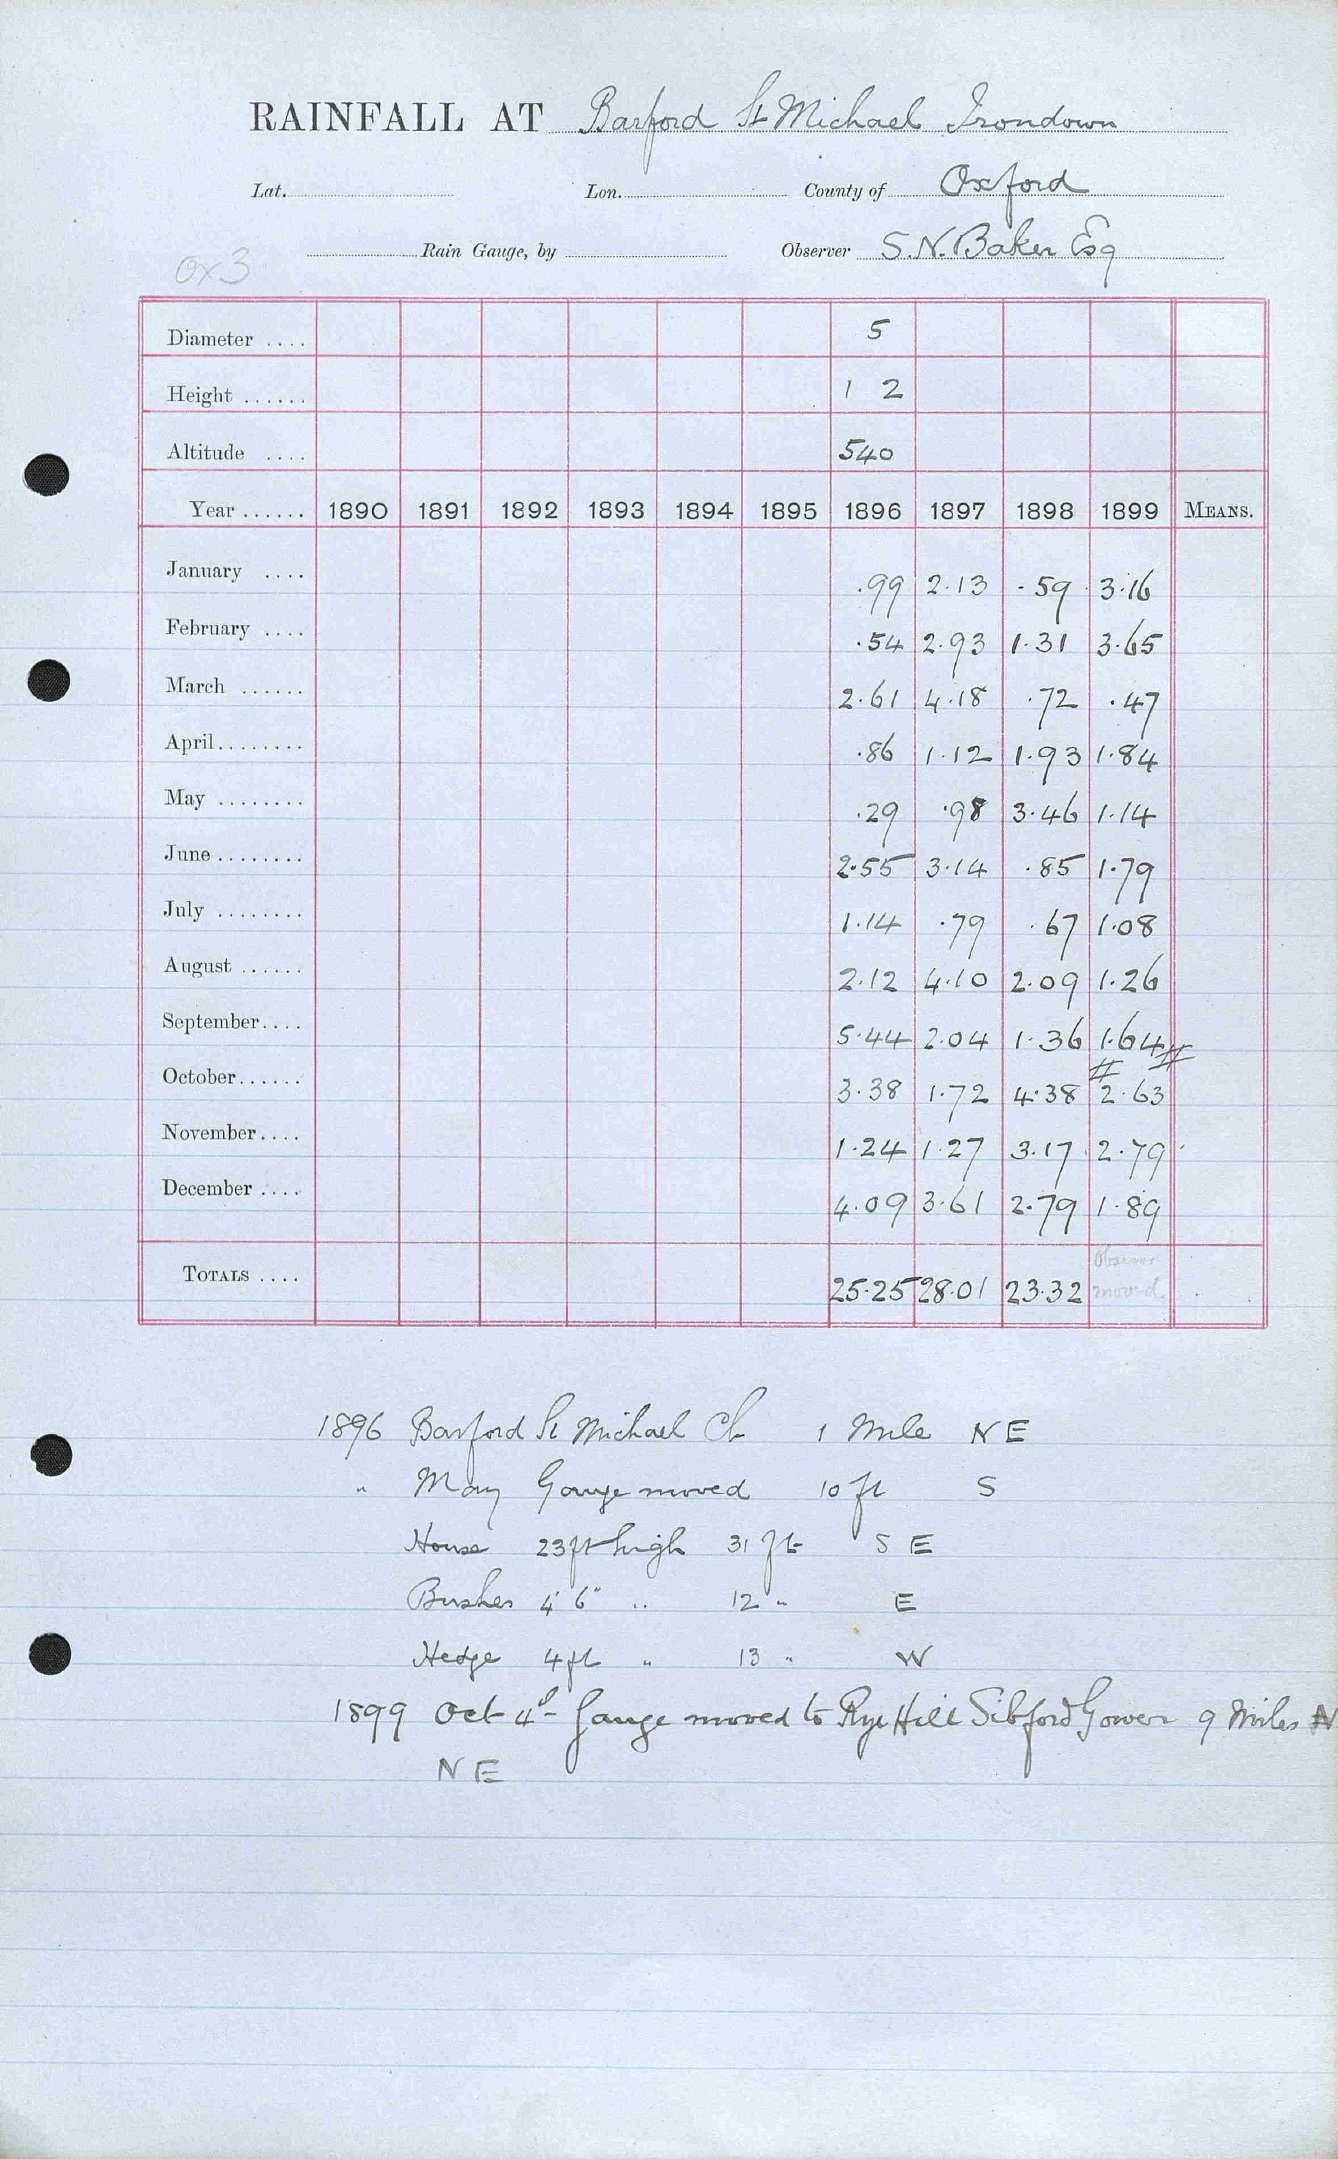 RAINFALL AT Barford St Michael Irondown
Lat. Lon. County of Oxford
Rain Gauge, by Observer S. N. Baker Esq
Ox3
Diameter .... 5
Height ...... 1 2
Altitude .... 540
Year ...... 1890 1891 1892 1893 1894 1895 1896 1897 1898 1899 MEANS.
January .... .99 2.13 .59 3.16
February .... .54 2.93 1.31 3.65
March ...... 2.61 4.18 .72 .47
April........ .86 1.12 1.93 1.84
May ........ .29 .98 3.46 1.14
June ........ 2.55 3.14 .85 1.79
July ........ 1.14 .79 .67 1.08
August ...... 2.12 4.10 2.09 1.26
September.... 5.44 2.04 1.36 1.64 #
October...... 3.38 1.72 4.38 # 2.63
November.... 1.24 1.27 3.17 2.79
December .... 4.09 3.61 2.79 1.89
TOTALS .... 25.25 28.01 23.32 Observer moved
1896 Barford St Michael Ch 1 Mile NE
" May Gauge moved 10 ft S
House 23ft high 31 ft SE
Bushes 4' 6" " 12 " E
Hedge 4ft " 13 " W
1899 Oct 4th Gauge moved to Rye Hill Sibford Gower 9 Miles N
NE